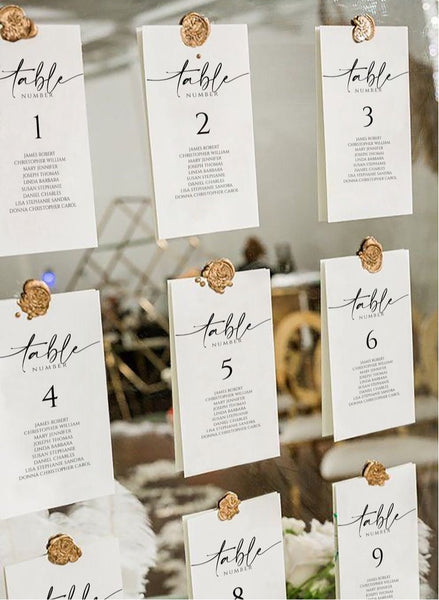 table
NUMBER
1
JAMES ROBERT
CHRISTOPHER WILLIAM
MARY JENNIFER
JOSEPH THOMAS
LINDA BARBARA
SUSAN STEPHANIE
DANIEL CHARLES
LISA STEPHANIE SANDRA
DONNA CHRISTOPHER CAROL
table
NUMBER
2
JAMES ROBERT
CHRISTOPHER WILLIAM
MARY JENNIFER
JOSEPH THOMAS
LINDA BARBARA
SUSAN STEPHANIE
DANIEL CHARLES
LISA STEPHANIE SANDRA
DONNA CHRISTOPHER CAROL
table
NUMBER
3
JAMES ROBERT
CHRISTOPHER WILLIAM
MARY JENNIFER
JOSEPH THOMAS
LINDA BARBARA
SUSAN STEPHANIE
DANIEL CHARLES
LISA STEPHANIE SANDRA
DONNA CHRISTOPHER CAROL
table
NUMBER
4
JAMES ROBERT
CHRISTOPHER WILLIAM
MARY JENNIFER
JOSEPH THOMAS
LINDA BARBARA
SUSAN STEPHANIE
DANIEL CHARLES
LISA STEPHANIE SANDRA
DONNA CHRISTOPHER CAROL
table
NUMBER
5
JAMES ROBERT
CHRISTOPHER WILLIAM
MARY JENNIFER
JOSEPH THOMAS
LINDA BARBARA
SUSAN STEPHANIE
DANIEL CHARLES
LISA STEPHANIE SANDRA
DONNA CHRISTOPHER CAROL
table
NUMBER
6
JAMES ROBERT
CHRISTOPHER WILLIAM
MARY JENNIFER
JOSEPH THOMAS
LINDA BARBARA
SUSAN STEPHANIE
DANIEL CHARLES
LISA STEPHANIE SANDRA
DONNA CHRISTOPHER CAROL
table
table
NUMBER
8
table
NUMBER
9
JAMES ROBERT
CHRISTOPHER WILLIAM
MARY JENNIFER
JOSEPH THOMAS